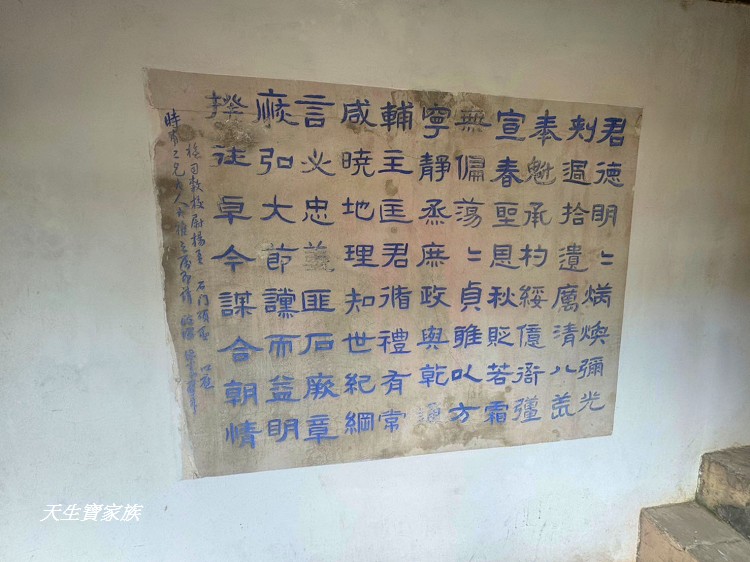 君德明〻炳煥彌光
刺過拾遺厲清八荒
奉魁承杓綏億衙彊
宣春聖恩秋貶若霜
無偏蕩〻貞雅以方
寧靜烝庶政與乾通
輔主匡君循禮有常
咸曉地理知世紀綱
言必忠義匪石厥章
恢弘大節讜而益明
揆往卓今謀合朝情
石门頌
天生寶家族